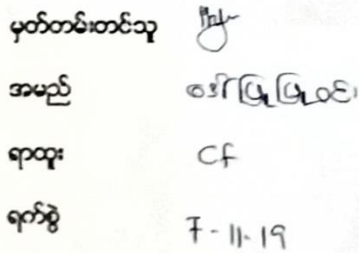 မှတ်တမ်းတင်သူ
အမည် ဒေါ်ဖြူဖြူဝင်း
ရာထူး CF
ရက်စွဲ 7-11-19